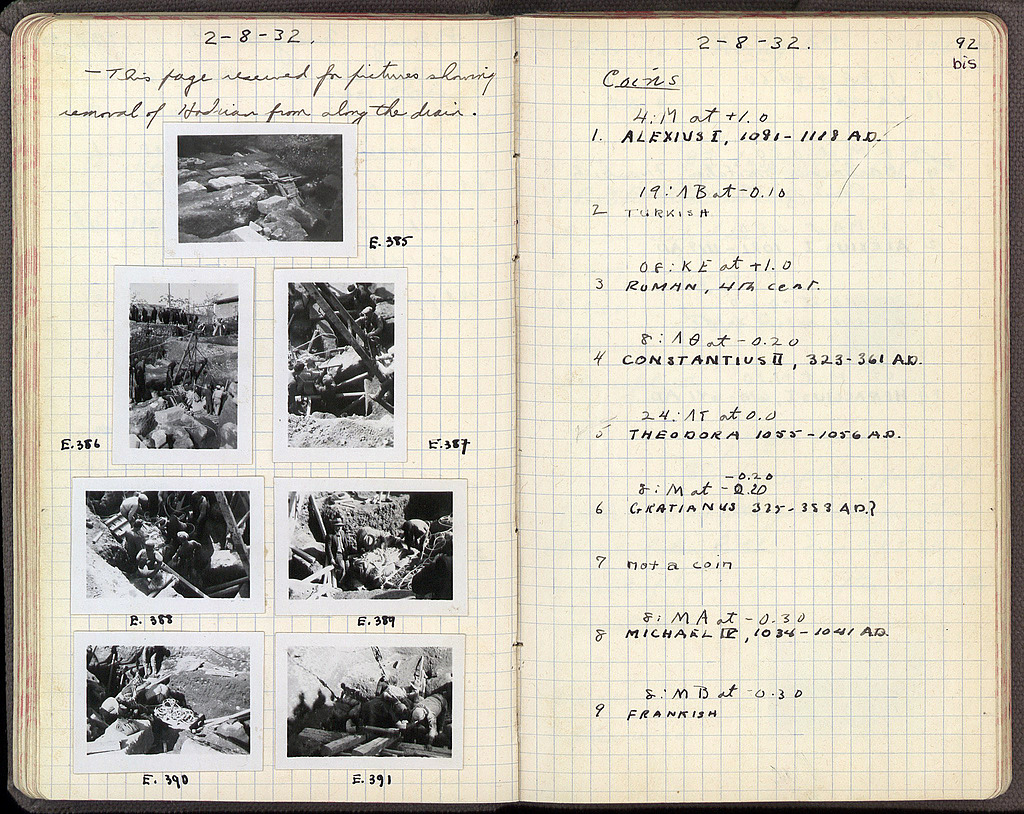 2-8-32.
- This page reserved for pictures showing
removal of Hadrian from along the drain.
E.385
E.386
E.387
E.388
E.389
E.390
E.391
2-8-32.
92
bis
Coins
4:M at +1.0
1. ALEXIUS I, 1081-1118 A.D.
19:ΛB at -0.10
2 TURKISH
08:KE at +1.0
3 ROMAN, 4th cent.
8:ΛΘ at -0.20
4 CONSTANTIUS II, 323-361 A.D.
24: at 0.0
5 THEODORA 1055-1056 A.D.
-0.20
8:M at -0.20
6 GRATIANUS 375-383 A.D.?
7 not a coin
8:MA at -0.30
8 MICHAEL IV, 1034-1041 A.D.
8:MB at -0.30
9 FRANKISH